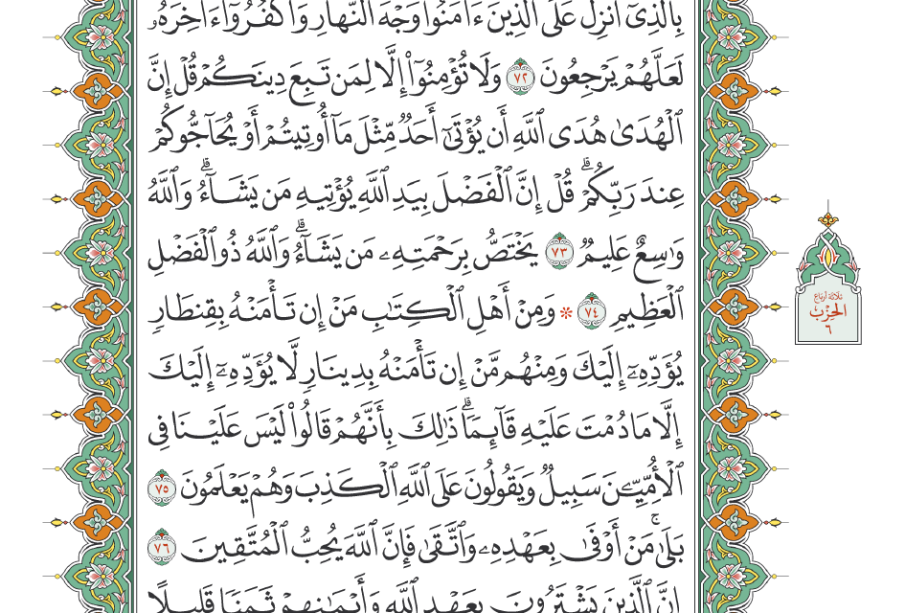 بِٱلَّذِىٓ أُنزِلَ عَلَى ٱلَّذِينَ ءَامَنُوا۟ وَجْهَ ٱلنَّهَارِ وَٱكْفُرُوٓا۟ ءَاخِرَهُۥ
لَعَلَّهُمْ يَرْجِعُونَ ٧٢ وَلَا تُؤْمِنُوٓا۟ إِلَّا لِمَن تَبِعَ دِينَكُمْ قُلْ إِنَّ
ٱلْهُدَىٰ هُدَى ٱللَّهِ أَن يُؤْتَىٰٓ أَحَدٌ مِّثْلَ مَآ أُوتِيتُمْ أَوْ يُحَآجُّوكُمْ
عِندَ رَبِّكُمْ ۗ قُلْ إِنَّ ٱلْفَضْلَ بِيَدِ ٱللَّهِ يُؤْتِيهِ مَن يَشَآءُ ۗ وَٱللَّهُ
وَٰسِعٌ عَلِيمٌ ٧٣ يَخْتَصُّ بِرَحْمَتِهِۦ مَن يَشَآءُ ۗ وَٱللَّهُ ذُو ٱلْفَضْلِ
ٱلْعَظِيمِ ٧٤ * وَمِنْ أَهْلِ ٱلْكِتَٰبِ مَنْ إِن تَأْمَنْهُ بِقِنطَارٍ
يُؤَدِّهِۦٓ إِلَيْكَ وَمِنْهُم مَّنْ إِن تَأْمَنْهُ بِدِينَارٍ لَّا يُؤَدِّهِۦٓ إِلَيْكَ
إِلَّا مَا دُمْتَ عَلَيْهِ قَآئِمًا ۗ ذَٰلِكَ بِأَنَّهُمْ قَالُوا۟ لَيْسَ عَلَيْنَا فِى
ٱلْأُمِّيِّـۧنَ سَبِيلٌ وَيَقُولُونَ عَلَى ٱللَّهِ ٱلْكَذِبَ وَهُمْ يَعْلَمُونَ ٧٥
بَلَىٰ ۚ مَنْ أَوْفَىٰ بِعَهْدِهِۦ وَٱتَّقَىٰ فَإِنَّ ٱللَّهَ يُحِبُّ ٱلْمُتَّقِينَ ٧٦
إِنَّ ٱلَّذِينَ يَشْتَرُونَ بِعَهْدِ ٱللَّهِ وَأَيْمَٰنِهِمْ ثَمَنًا قَلِيلًا
ثلاثة أرباع
الحزب
٦